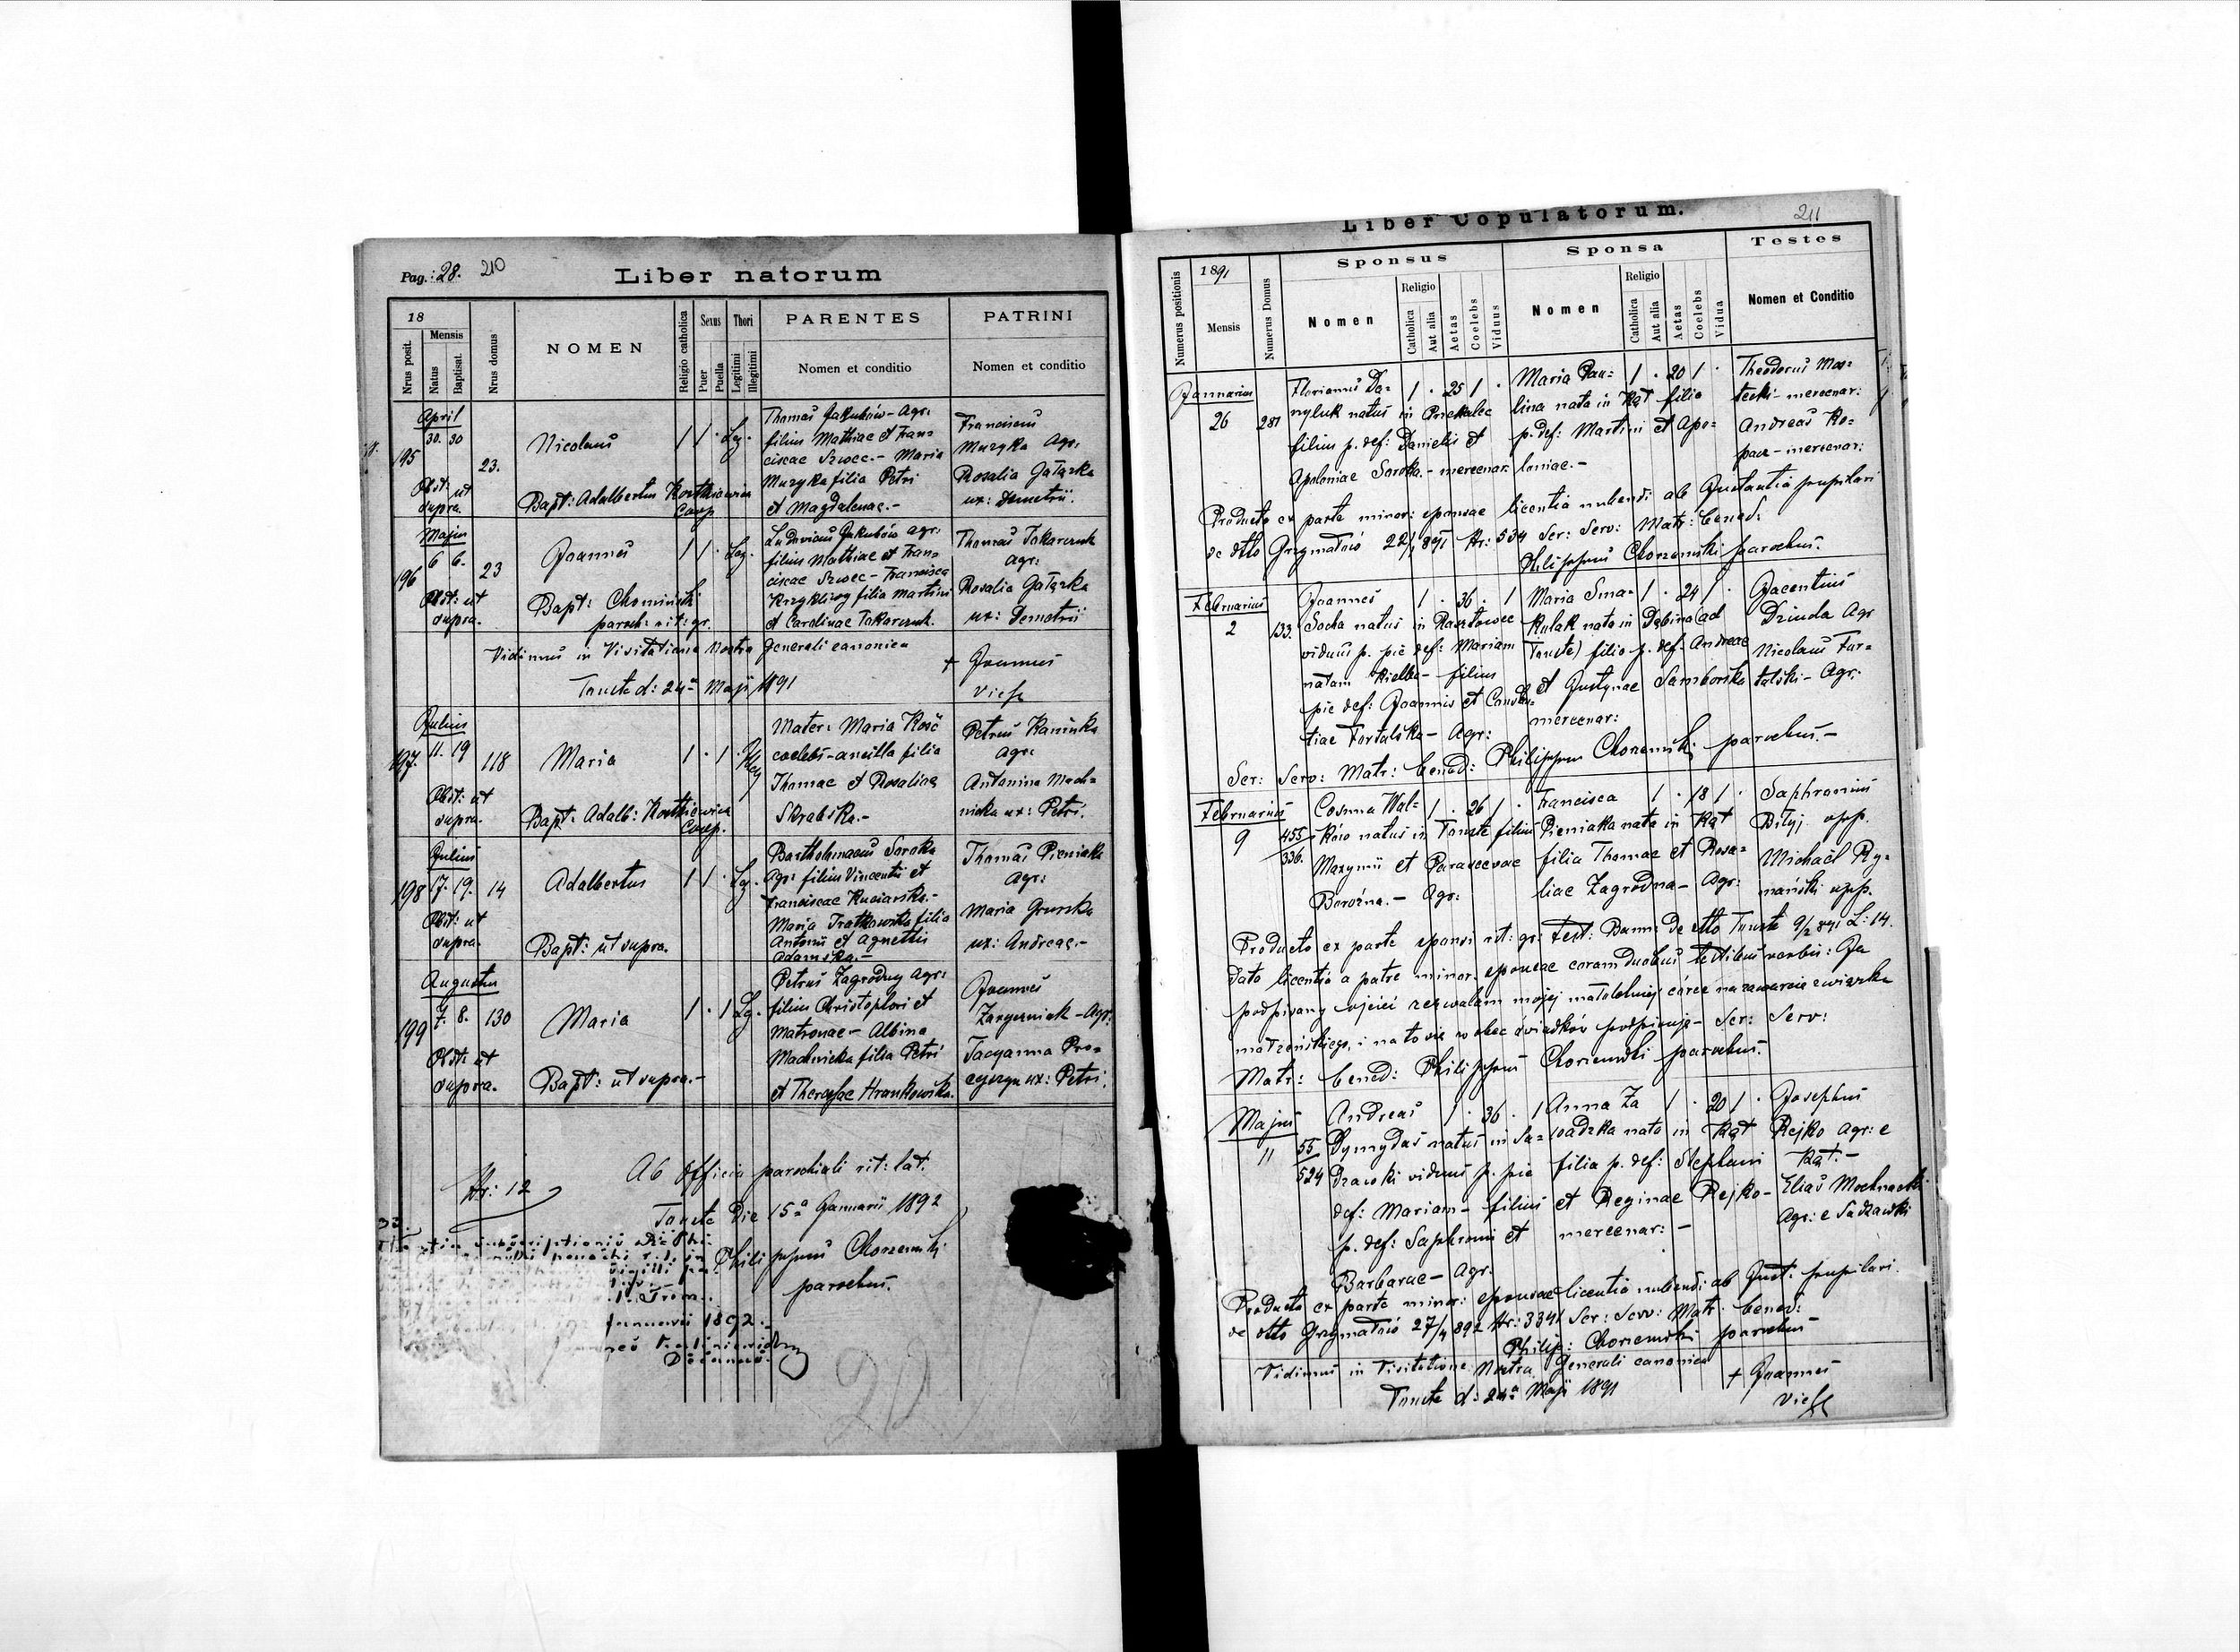 Pag.: 28. 210
Liber natorum
18
Nrus posit.
Mensis
Natus
Baptisat.
Nrus domus
NOMEN
Religio catholica
Sexus
Puer
Puella
Thori
Legitimi
Illegitimi
PARENTES
Nomen et conditio
PATRINI
Nomen et conditio
April
30. 30
195
23.
Obst: ut
supra.
Nicolaus
1 1 . Leg.
Bapt: Adalbertus Kostkiewicz
Coop
Thomas Jakubów - Agr:
filius Mathiae et Fran=
ciscae Szwec. - Maria
Muzyka filia Petri
et Magdalenae. -
Franciscus
Muzyka Agr:
Rosalia Gałązka
ux: Demetrii.
Majus
6 6.
196
23
Obst: ut
supra.
Joannes
1 1 . Leg.
Bapt: Chominski
paroch: rit: gr.
Ludovicus Jakubów agr:
filius Mathiae et Fran=
ciscae Szwec - Francisca
filia Martini
et Carolinae Tokarczuk.
Thomas Tokarczuk
agr:
Rosalia Gałązka
ux: Demetrii
Vidimus in Visitatione Nostra generali canonica
Touste d: 24a Maji 1891
+ Joannes
Julius
197
11. 19
118
Obst: ut
supra.
Maria
1 . 1
Bapt: Adalb: Kostkiewicz
Coop.
Mater: Maria Kość
coelebs - ancilla filia
Thomae et Rosaliae
Skrabska. -
Petrus Kaminka
agr:
Antonina Mach=
nicka ux: Petri.
Julius
198
17. 19.
14
Obst: ut
supra.
Adalbertus
1 1 . Leg.
Bapt: ut supra.
Bartholomaeus Soroka
Agr: filius Vincentii et
Franciscae Kuciarska. -
Maria Tratkowska filia
Antonii et Agnetis
Adamska. -
Thomas Pieniaka
agr:
Maria Grurska
ux: Andreae. -
Augustus
7. 8.
199
130
Obst: ut
supra.
Maria
1 . 1 Lg.
Bapt: ut supra. -
Petrus Zagrodny Agr:
filius Christophori et
Matronae - Albina
Machnicka filia Petri
et Theresae Hrankowska.
Joannes
- Agr:
Tacyanna Pro=
ux: Petri.
Nr: 12
Ab Officio parochiali rit: lat.
Touste Die 15a Januarii 1892
Philippus Chorzemski
parochus.
Januarii 1892.
Decanus.
212
Liber Copulatorum.
211
Numerus positionis
1891
Mensis
Numerus Domus
Sponsus
Nomen
Religio
Catholica
Aut alia
Aetas
Coelebs
Viduus
Sponsa
Nomen
Religio
Catholica
Aut alia
Aetas
Coelebs
Vidua
Testes
Nomen et Conditio
Januarius
26
281
Florianus Da= 1 . 25 1 .
nyluk natus in Prekalec
filius p. def: Danielis et
Apoloniae Soroka. - mercenar:
Maria Pau= 1 . 20 1 .
lina nata in Kąt filia
p. def: Martini et Apo=
loniae. -
Theodorus Mos=
tecki - mercenar:
Andreas Ko=
pacz - mercenar:
Producta ex parte minor: sponsae licentia nubendi ab Instantia pupilari
de dtto Grzymałów 22/1 891 Nr: 534 Ser: Serv: Matr: bened:
Philippus Chorzemski parochus.
Februarius
2
133.
Joannes 1 . 36 . 1
Socha natus in Rasztowce
viduus p. pie def: Mariam
natam Kielba - filius
pie def: Joannis et Constan=
tiae Fortalska - Agr:
Maria Sma= 1 . 24 1 .
kulak nata in Dąbina (ad
Touste) filia p. def: Andreae
et Justynae Samborska
mercenar:
Jacentius
Dziuda Agr
Nicolaus For=
talski - Agr:
Ser: Serv: Matr: bened: Philippus Chorzemski parochus. -
Februarius
9
455
336.
Cosma Wal= 1 . 26 1 .
ków natus in Touste filius
Maxymii et Parascevae
Borożna. - Agr:
Francisca 1 . 18 1 .
Pieniaka nata in Kąt
filia Thomae et Rosa=
liae Zagrodna - Agr:
Saphronius
Biłyj opp.
Michaël Ry=
mański opp.
Producto ex parte sponsi rit: gr: Test: Bann: de dtto Touste 9/2 891 L: 14.
Data licentia a patre minor. sponsae coram duobus testibus verbis: Ja
podpisany ojciec zezwalam mojej małoletniej córce na zawarcie związku
małżeńskiego, i na to się wobec świadków podpisuję - Ser: Serv:
Matr: bened: Philippus Chorzemski parochus.
Majus
11
55
524
Andreas 1 . 36 . 1
Dymydas natus in Sa=
dzawki viduus p. pie
def: Mariam - filius
p. def: Saphronii et
Barbarae - Agr.
Anna Za 1 . 20 1 .
wadzka nata in Kąt
filia p. def: Stephani
et Reginae Rejko -
mercenar: -
Josephus
Rejko Agr: e
Kąt. -
Elias Mochnacki
Agr: e Sadzawki
Producta ex parte minor: sponsae licentia nubendi ab Inst: pupilari
de dtto Grzymałów 27/4 892 Nr: 3341 Ser: Serv: Matr: bened:
Philip: Chorzemski parochus
Vidimus in Visitatione Nostra generali canonica
Touste d: 24a Maji 1891
+ Joannes